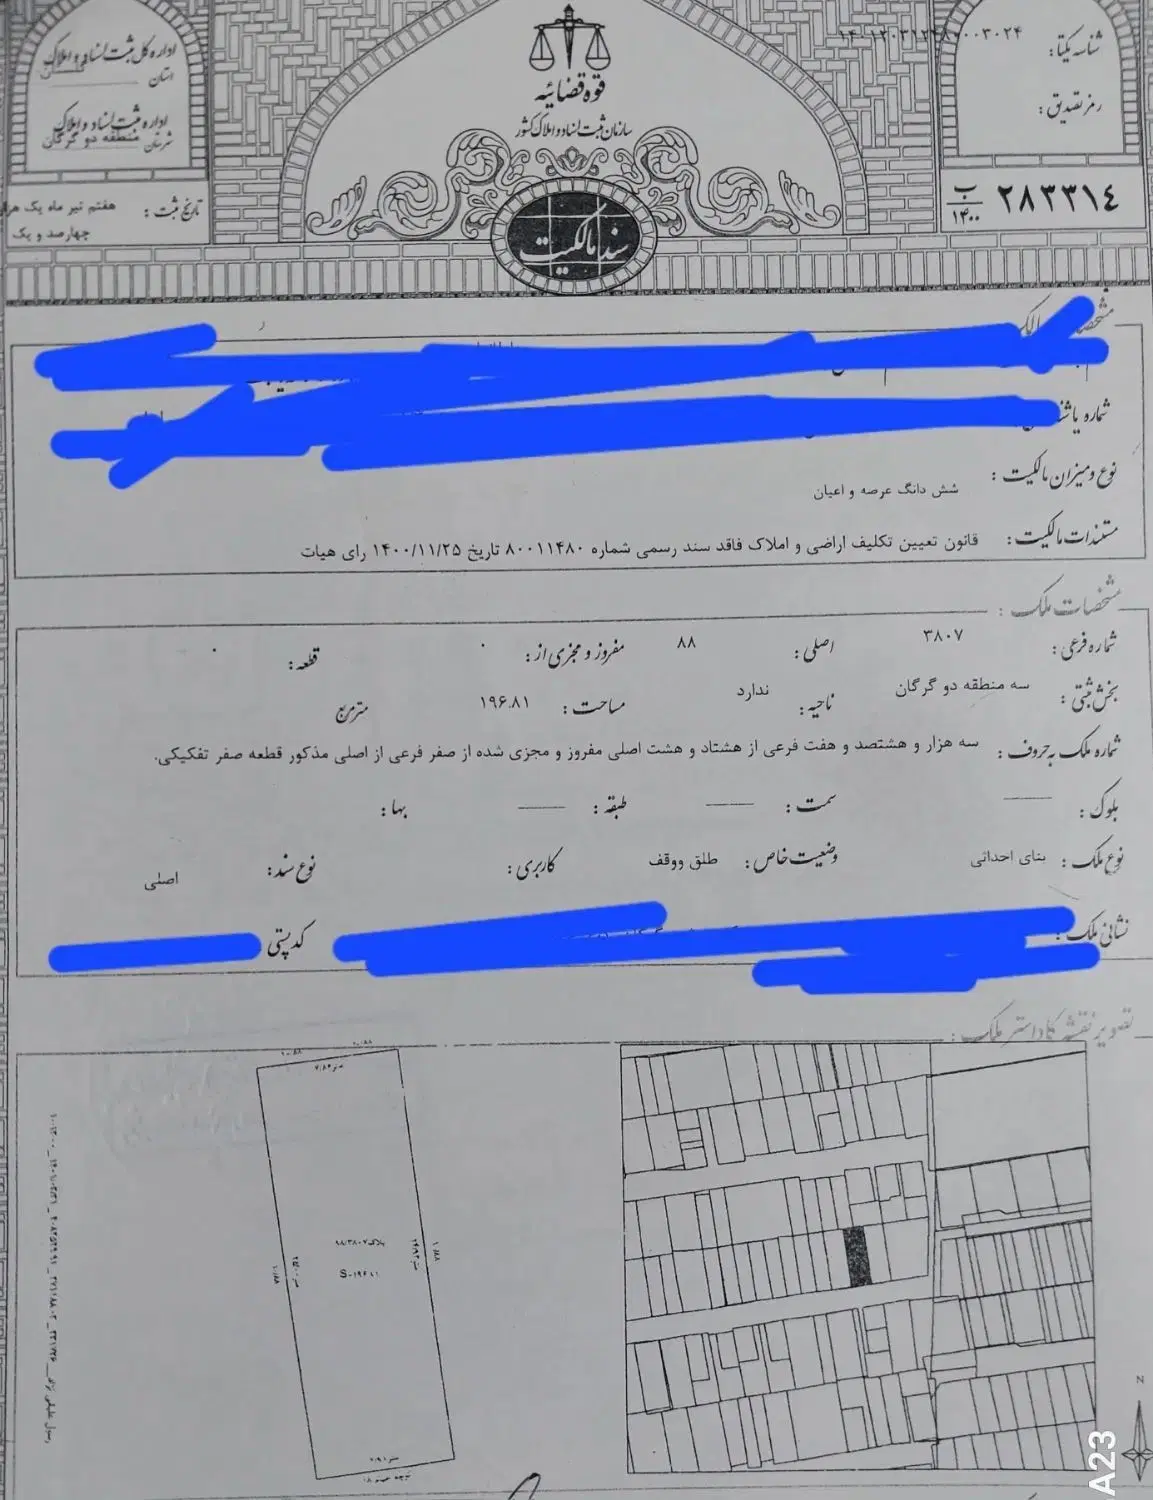 اداره کل ثبت اسناد و املاک
استان گلستان
اداره ثبت اسناد و املاک
شهرستان منطقه دو گرگان
تاریخ ثبت : هفتم تیر ماه یک هزار
چهارصد و یک
قوه قضائیه
سازمان ثبت اسناد و املاک کشور
سند مالکیت
شناسه یکتا:
رمز تصدیق:
۲۸۳۳۱۴ ب ۱۴۰۰
شماره یا
نوع و میزان مالکیت : شش دانگ عرصه و اعیان
مستندات مالکیت : قانون تعیین تکلیف اراضی و املاک فاقد سند رسمی شماره ۸۰۰۱۱۴۸۰ تاریخ ۱۴۰۰/۱۱/۲۵ رای هیات
مشخصات ملک :
شماره فرعی : ۳۸۰۷ اصلی : ۸۸ مفروز و مجزی از : ۰ قطعه : ۰
بخش ثبتی : سه منطقه دو گرگان ناحیه : ندارد مساحت : ۱۹۶.۸۱ مترمربع
شماره ملک به حروف : سه هزار و هشتصد و هفت فرعی از هشتاد و هشت اصلی مفروز و مجزی شده از صفر فرعی از اصلی مذکور قطعه صفر تفکیکی.
بلوک : سمت : طبقه : بها :
نوع ملک : بنای احداثی وضعیت خاص : طلق ووقف کاربری : نوع سند : اصلی
نشانی ملک : کدپستی
تصویر نقشه کاداستر ملک :
N
A23